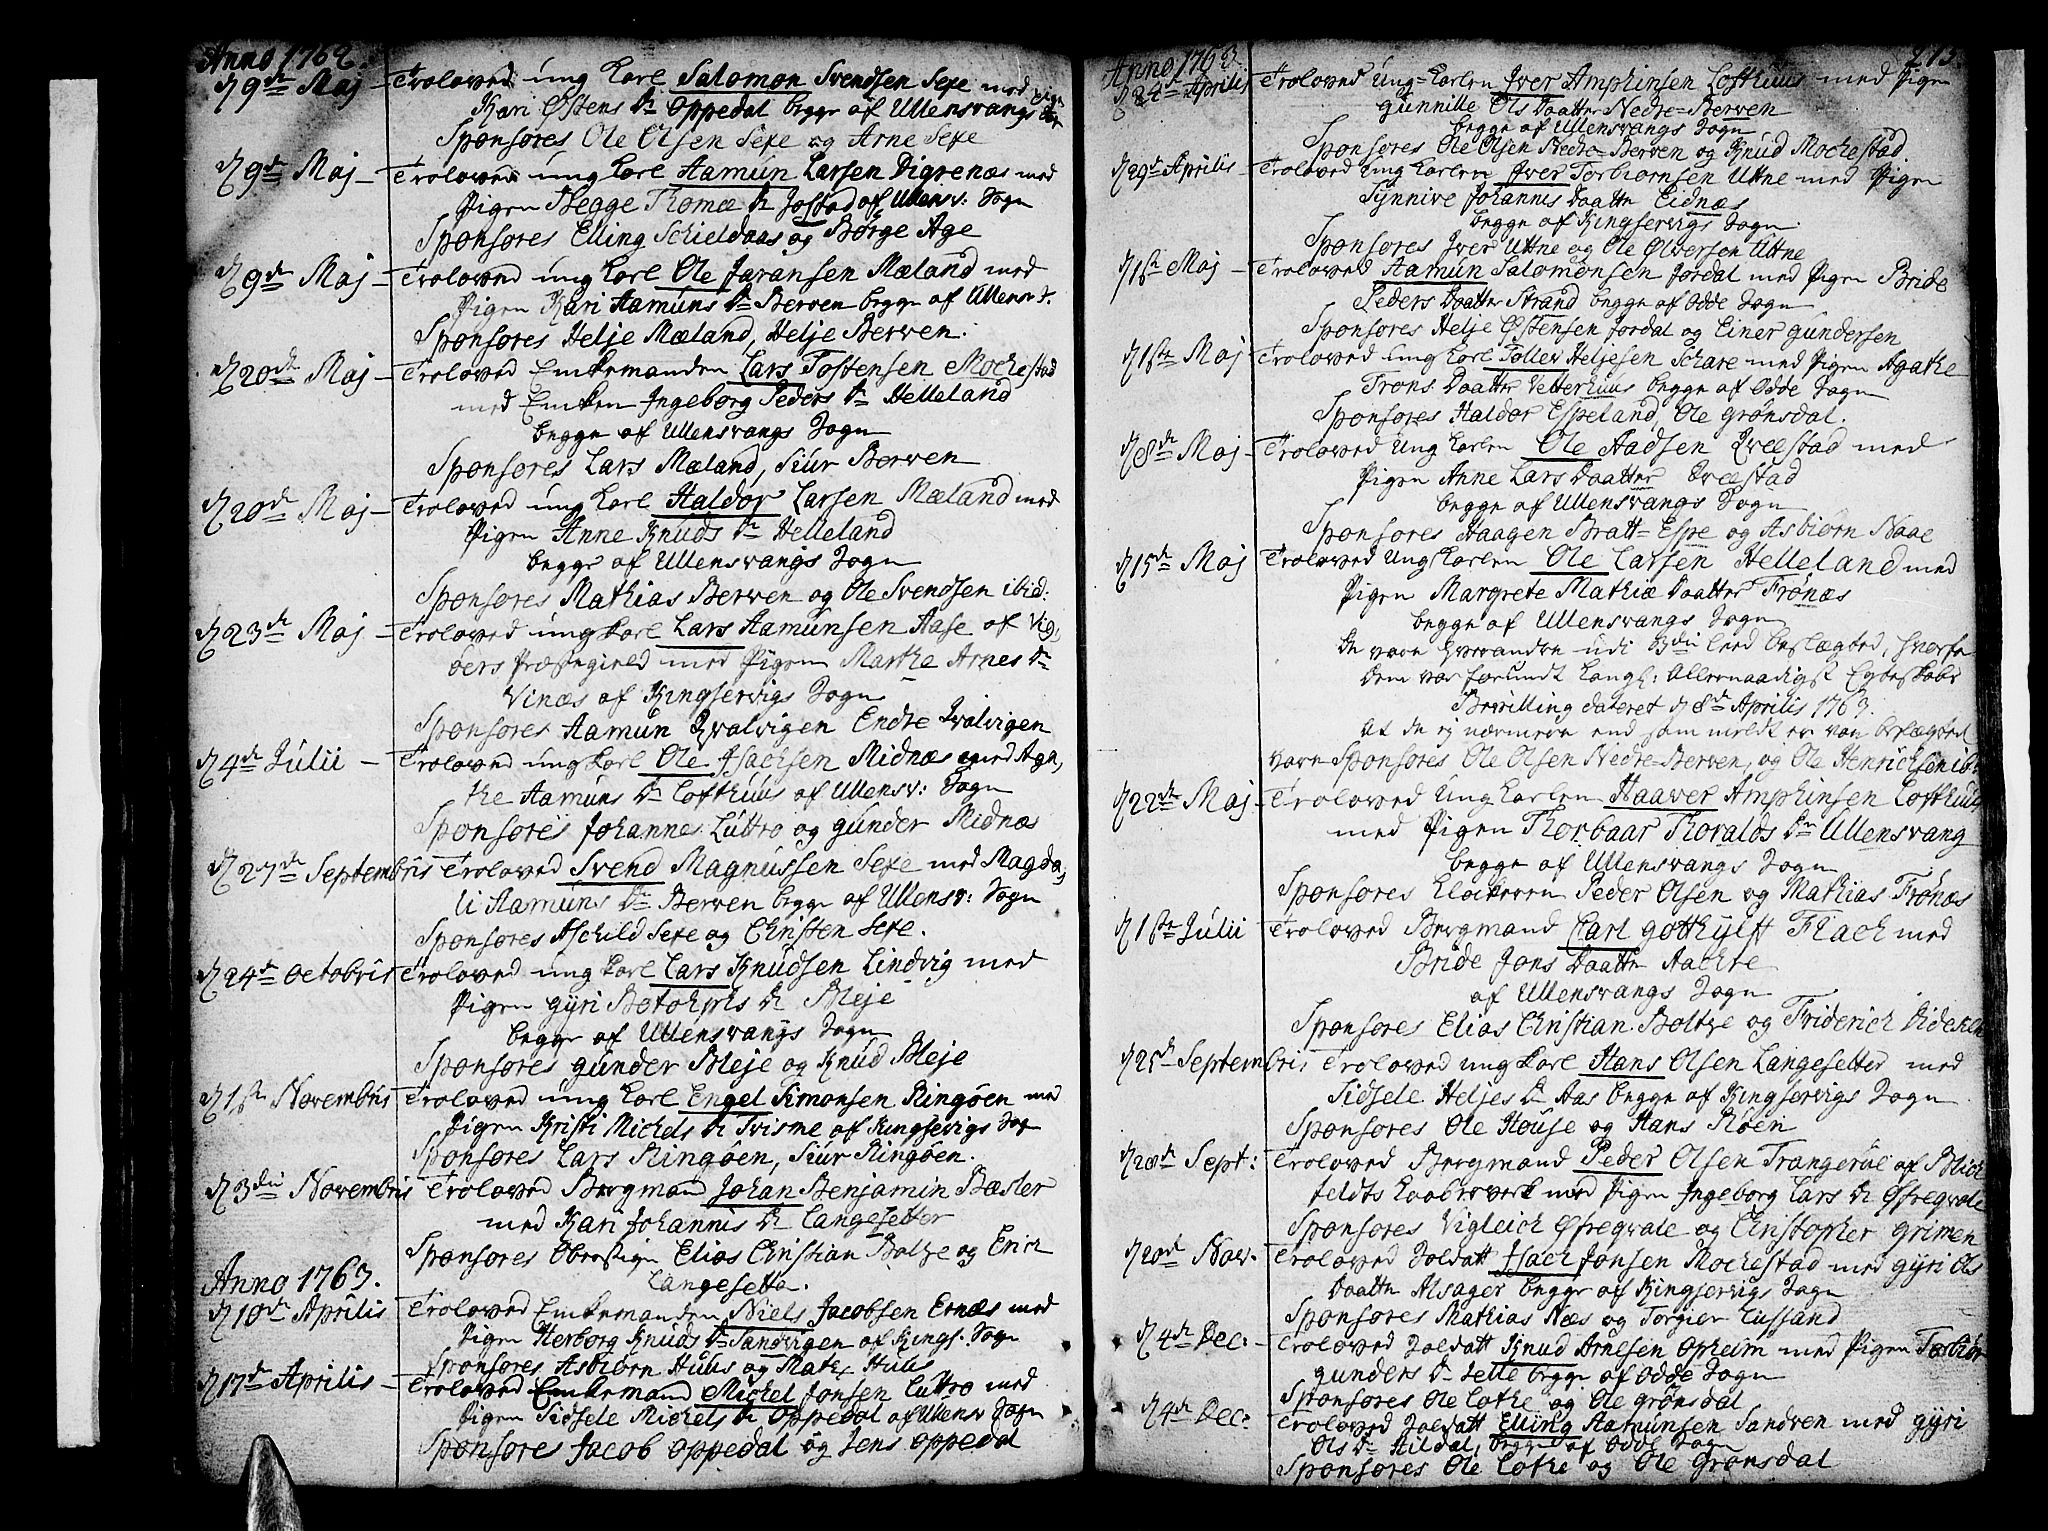 Anno 1762.
d 9de Maj – Troloved ung Karl Salomon Svendsen Sexe med
Kari Østens Dr Oppedal begge af Ullensvangs
Sponsores Ole Olsen Sexe og Arne Sexe
d 9de Maj – Troloved ung Karl Aamun Larsen Digrenæs med
Pigen Begge Thomæ Dr Jostad af Ullensv: Sogn
Sponsores Elling Schieldaas og Børge Age
d 9de Maj – Troloved ung Karl Ole Jaransen Mæland med
Pigen Kari Aamuns Dr Berven begge af Ullensv:
Sponsores Helje Mæland, Helje Berven.
d 20de Maj – Troloved Enkemanden Lars Tostensen Mochestad
med Enken Ingeborg Peders Dr Helleland
begge af Ullensvangs Sogn
Sponsores Lars Mæland, Siur Berven
d 20de Maj – Troloved ung Karl Haldor Larsen Mæland med
Pigen Anne Knuds Dr Helleland
begge af Ullensvangs Sogn
Sponsores Mathias Berven og Ole Svendsen ibid:
d 23de Maj – Troloved ung Karl Lars Aamunsen Aase af Vig,
ders Præstegield med Pigen Marthe Arnes Dr
Vinæs af Kingservigs Sogn
Sponsores Aamun Qvalvigen Endre Qvalvigen
d 4de Julii – Troloved ung Karl Ole Isachsen Midnæs med Aga,
the Aamuns Dr Lofthuus af Ullensv: Sogn
Sponsores Johannes Luttro og Gunder Midnæs
d 27de Septembris Troloved Svend Magnussen Sexe med Magda,
li Aamuns Dr Berven begge af Ullensv: Sogn
Sponsores Aschild Sexe og Christen Sexe.
d 24de Octobris Troloved ung Karl Lars Knudsen Lindvig med
Pigen Gyri Botolphs Dr Bleje
begge af Ullensvangs Sogn
Sponsores Gunder Bleje og Knud Bleje
d 1ste Novembris Troloved ung Karl Engel Simonsen Ringøen med
Pigen Kristi Michels Dr Trisme af Kingservigs Sogn
Sponsores Lars Ringøen, Siur Ringøen.
d 3die Novembris Troloved Bergmand Johan Benjamin Bæsler
med Kari Johannis Dr Langesetter
Sponsores Oberstigr Elias Christian Boltze og Erich
Langesetter.
Anno 1763.
d 10de Aprilis Troloved Enkemanden Niels Jacobsen Ernæs med
Pigen Herborg Knuds Dr Sandvigen af Kings: Sogn
Sponsores Asbiørn Huus og Math: Huus
d 17de Aprilis – Troloved Enkemand Michel Jonsen Luttro med
Pigen Sidsele Michels Dr Oppedal af Ullensv Sogn
Sponsores Jacob Oppedal og Jens Oppedal
Anno 1763. 273.
d 24de Aprilis Troloved Ung-Karlen Iver Amphinsen Lofthuus med Pigen
Gunnille Ols Daatter Nedre-Berven
begge af Ullensvangs Sogn
Sponsores Ole Olsen Nedre-Berven og Knud Mochestad.
d 29de Aprilis – Troloved Ung Karlen Iver Torbiørnsen Uttne med Pigen
Synnive Johannis Daatter Eidnæs
begge af Kingservigs Sogn
Sponsores Iver Uttne og Ole Olversen Uttne
d 1ste Maj – Troloved Aamun Salomonsen Jordal med Pigen Bride
Peders Daatter Strand begge af Odde Sogn
Sponsores Helje Østensen Jordal og Einer Gundersen
d 1ste Maj – Troloved Ung Karl Toller Heljesen Schare med Pigen Agathe
Trons Daatter Vetterhuus begge af Odde Sogn
Sponsores Haldor Espeland, Ole Grønsdal.
d 8de Maj – Troloved Ung Karlen Ole Aadsen Qvestad med
Pigen Anne Lars Daatter Qvestad
begge af Ullensvangs Sogn
Sponsores Haagen Bratt-Espe og Asbiørn Naae
d 15de Maj Troloved Ung Karlen Ole Larsen Helleland med
Pigen Margrete Mathiæ Daatter Frønæs
begge af Ullensvangs Sogn
De vare hverandre udi 3die leed beslægted, hvorfor
dem var forundt Kongl: Allernaadigst Egteskabs
Bevilling dateret d 8de Aprilis 1763.
At de ej nærmere end som meldt er var beslægted
vare Sponsores Ole Olsen Nedre-Berven, og Ole Henrichsen ib:
d 22de Maj – Troloved Ung Karlen Haaver Amphinsen Lofthuus
med Pigen Thorbaar Thoralds Dr Ullensvang
begge af Ullensvangs Sogn
Sponsores Klockeren Peder Olsen og Mathias Frønæs
d 1ste Julii – Troloved Bergmand Carl Gothylff Flach med
Bride Jons Daatter Aachre
af Ullensvangs Sogn
Sponsores Elias Christian Boltze og Friderich Didrich
d 25de Septembris Troloved ung Karl Hans Olsen Langesetter med
Sidsele Heljes Dr Aas begge af Kingservigs Sogn
Sponsores Ole House og Hans Røen
d 28de Sept: Troloved Bergmand Peder Olsen Trangerud af Blich
feldts Kaaberverk med Pigen Ingeborg Lars Dr Øfregvale
Sponsores Vigleich Øfregvale og Christopher Grimen
d 20de Nov: Troloved Soldatt Isach Jonsen Mochestad med Gyri Ols
Daatter Alsager begge af Kingservigs Sogn
Sponsores Mathias Næs og Torgier Lussand
d 4de Dec: – Troloved Soldatt Knud Arnesen Opheim med Pigen Torbiør
Gunders Dr Jelle begge af Odde Sogn
Sponsores Ole Lothe og Ole Grønsdal
d 4de Dec: Troloved Soldatt Elling Aamunsen Sandven med Gyri
Ols Dr Hildal, begge af Odde Sogn
Sponsores Ole Lothe og Ole Grønsdal